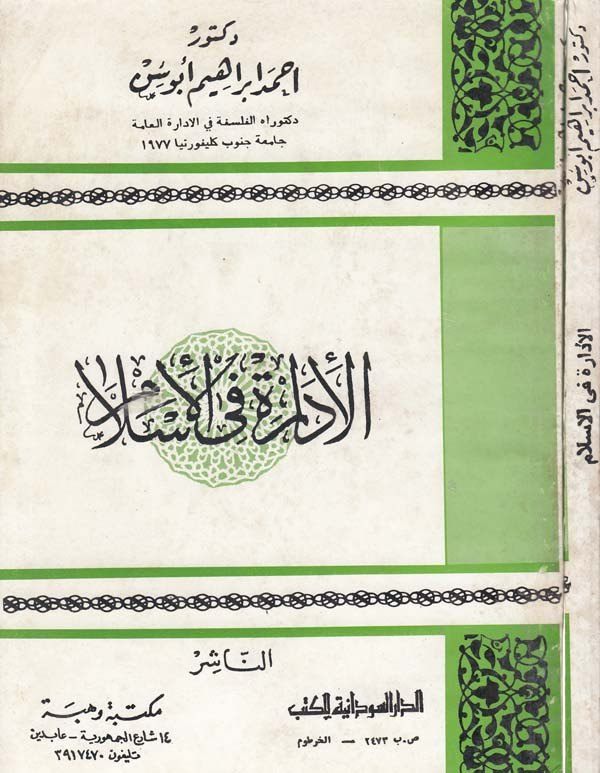 دكتور
احمد ابراهيم أبوسن
دكتوراه الفلسفة في الادارة العامة
جامعة جنوب كليفورنيا ١٩٧٧
الأدارة في الأسلام
الناشر
الدار السودانية للكتب
ص.ب ٢٤٧٣ — الخرطوم
مكتبة وهبة
١٤ شارع الجمهورية - عابدين
تليفون ٣٩١٧٤٧٠
دكتور احمد ابراهيم ابوسن
الأدارة فى الاسلام